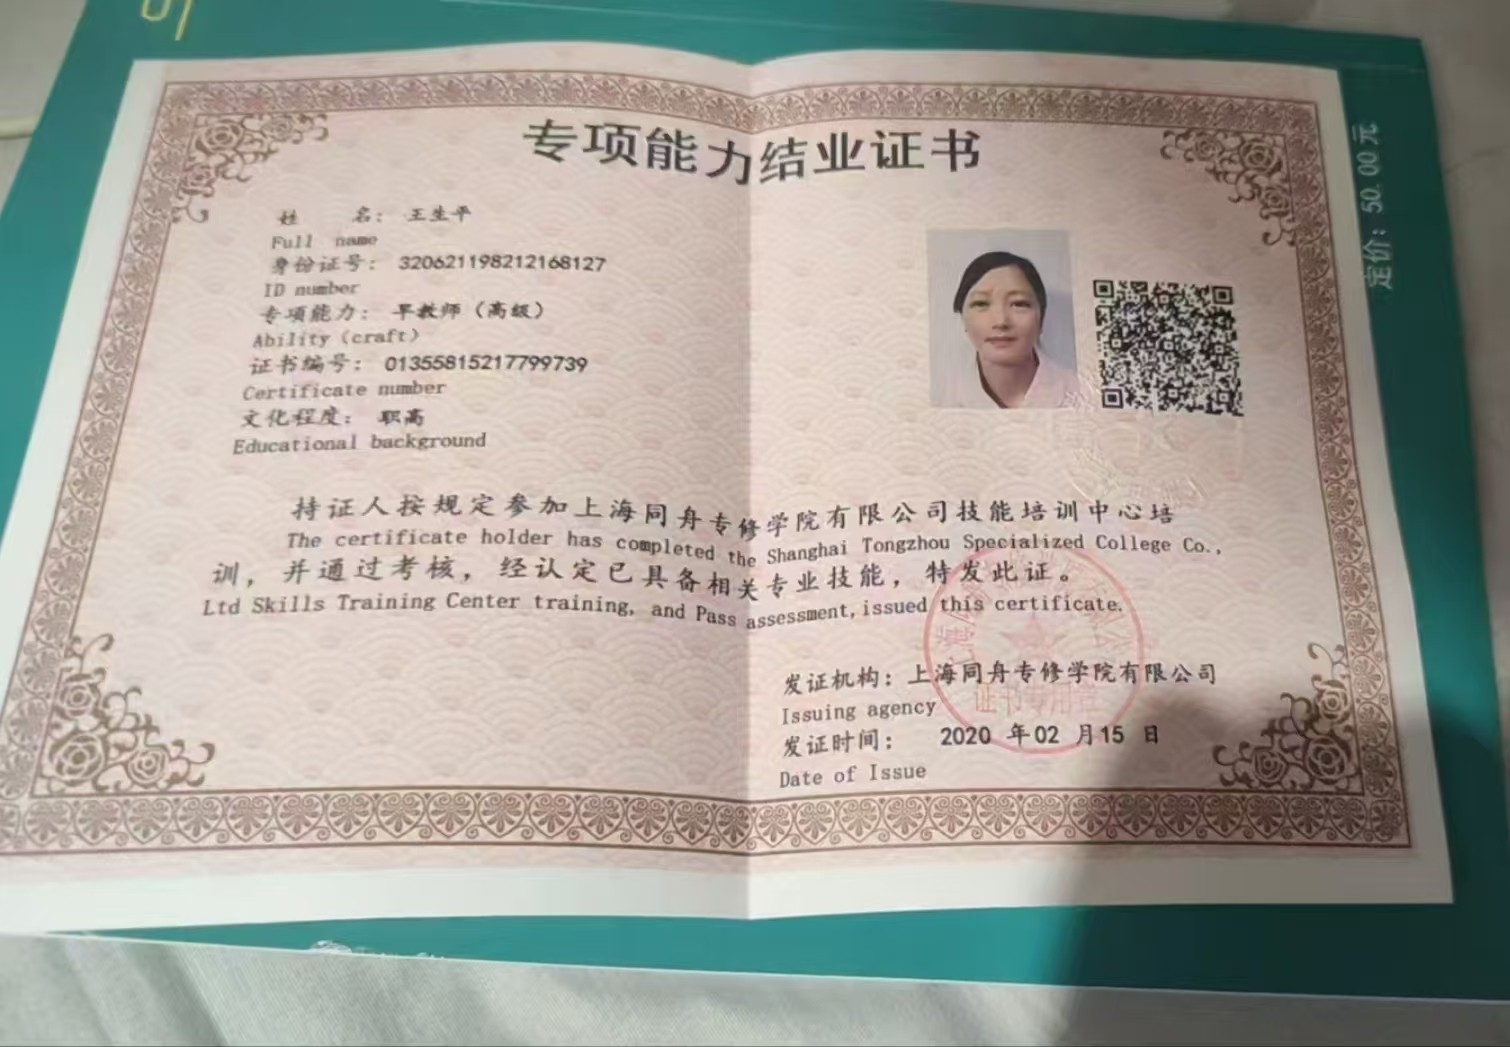 专项能力结业证书
姓 名： 王生平
Full name
身份证号： 320621198212168127
ID number
专项能力： 早教师（高级）
Ability (craft)
证书编号： 01355815217799739
Certificate number
文化程度： 职高
Educational background
持证人按规定参加上海同舟专修学院有限公司技能培训中心培
The certificate holder has completed the Shanghai Tongzhou Specialized College Co.,
训，并通过考核，经认定已具备相关专业技能，特发此证。
Ltd Skills Training Center training, and Pass assessment, issued this certificate.
发证机构：上海同舟专修学院有限公司
Issuing agency
发证时间： 2020 年 02 月 15 日
Date of Issue
证书专用章
定价：50.00元